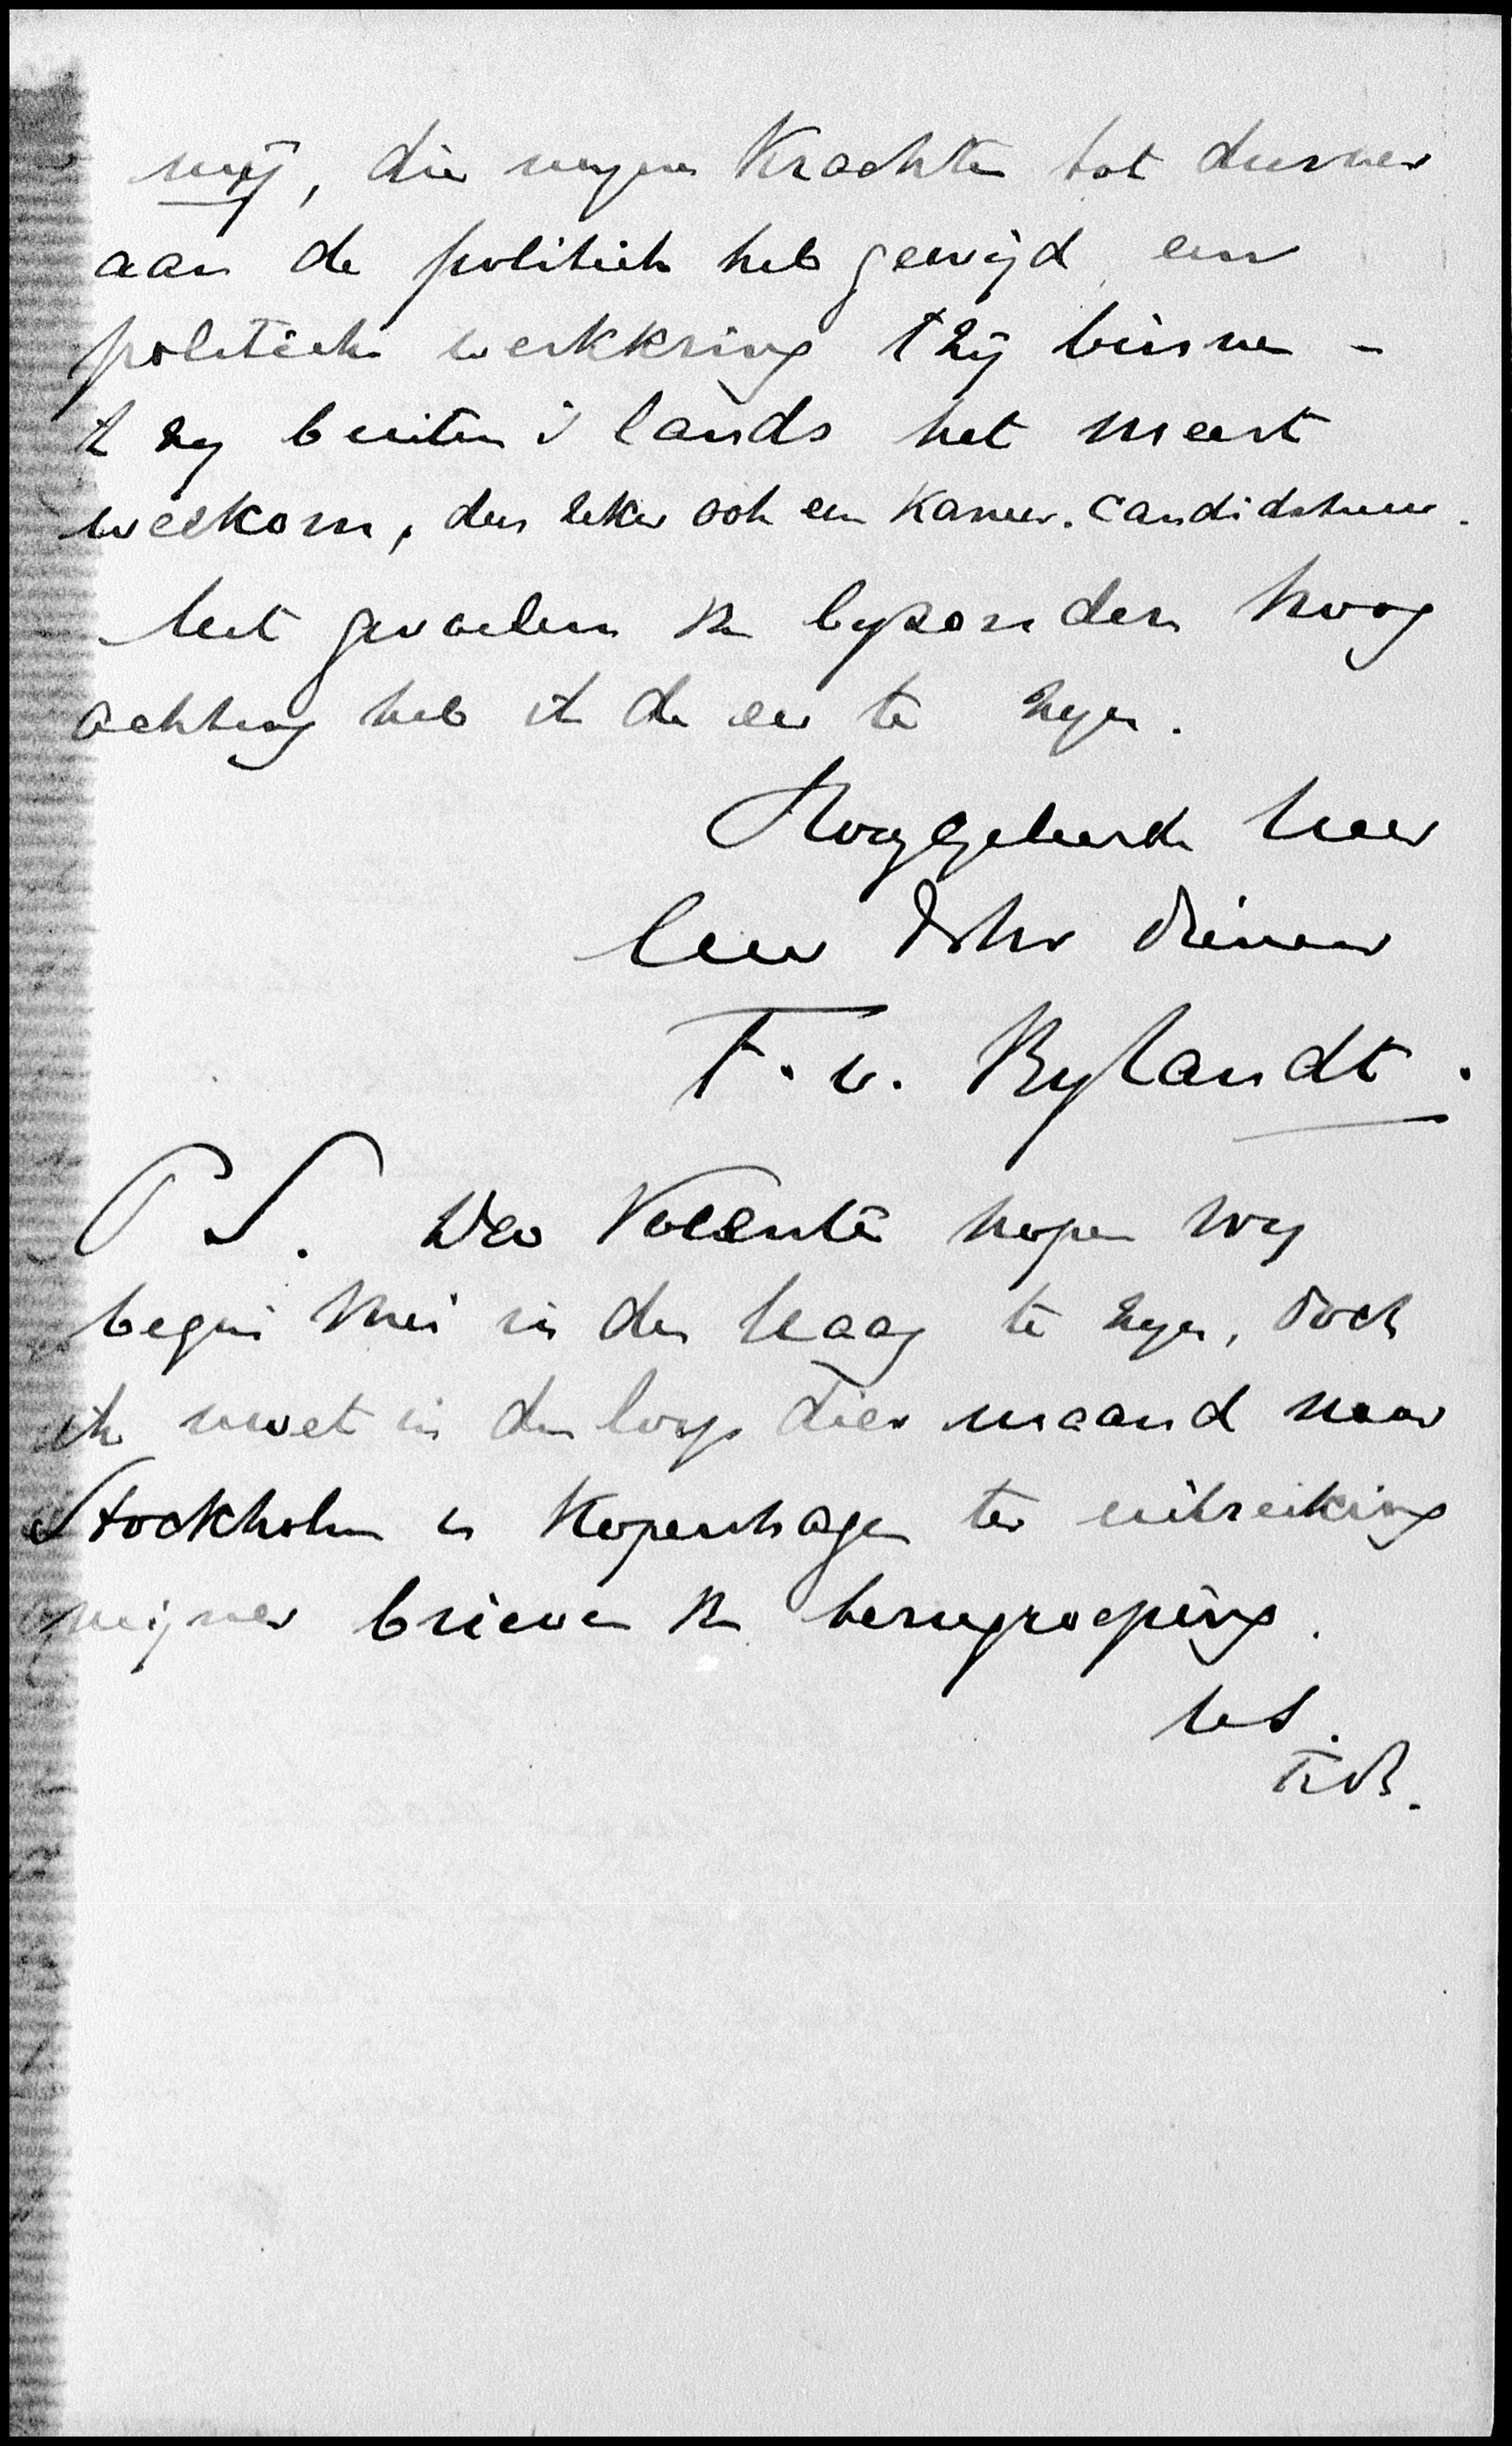 mij, die mijne krachten tot dusver
aan de politiek heb gewijd een
politieke werkkring 't zij binnen -
't zij buiten 's lands het meest
welkom, dus zeker ook een Kamer-candidatuur.
Met gevoelens v. byzondere hoog
achting heb ik de eer te zijn.
Hooggeleerde heer
Uew dwr dienaar
F. v. Bylandt.
P S. Deo Volente hopen wy
begin Mei in den Haag te zyn, doch
ik moet in den loop dier maand naar
Stockholm en Kopenhagen ter uitreiking
mijner brieven v. terugroeping.
FvB.